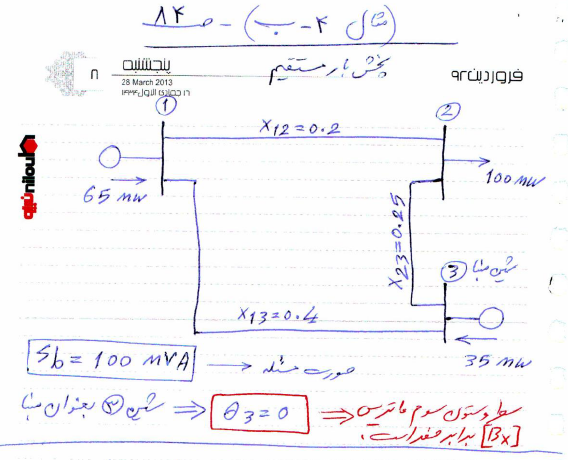 (مثال ۴-ب) - صـ ۸۴
پخش بار مستقیم
فروردین ۹۲
پنجشنبه ۸
28 March 2013
۱۶ جمادی الاول ۱۴۳۴
① X12=0.2 ②
65 MW
100 MW
X23=0.25
③ شین مبنا
X13=0.4
35 MW
Sb = 100 MVA → صورت مسئله
شین ③ بعنوان مبنا ⇒ θ3=0 ⇒ سطر و ستون سوم ماتریس
[Bx] برابر صفر است.